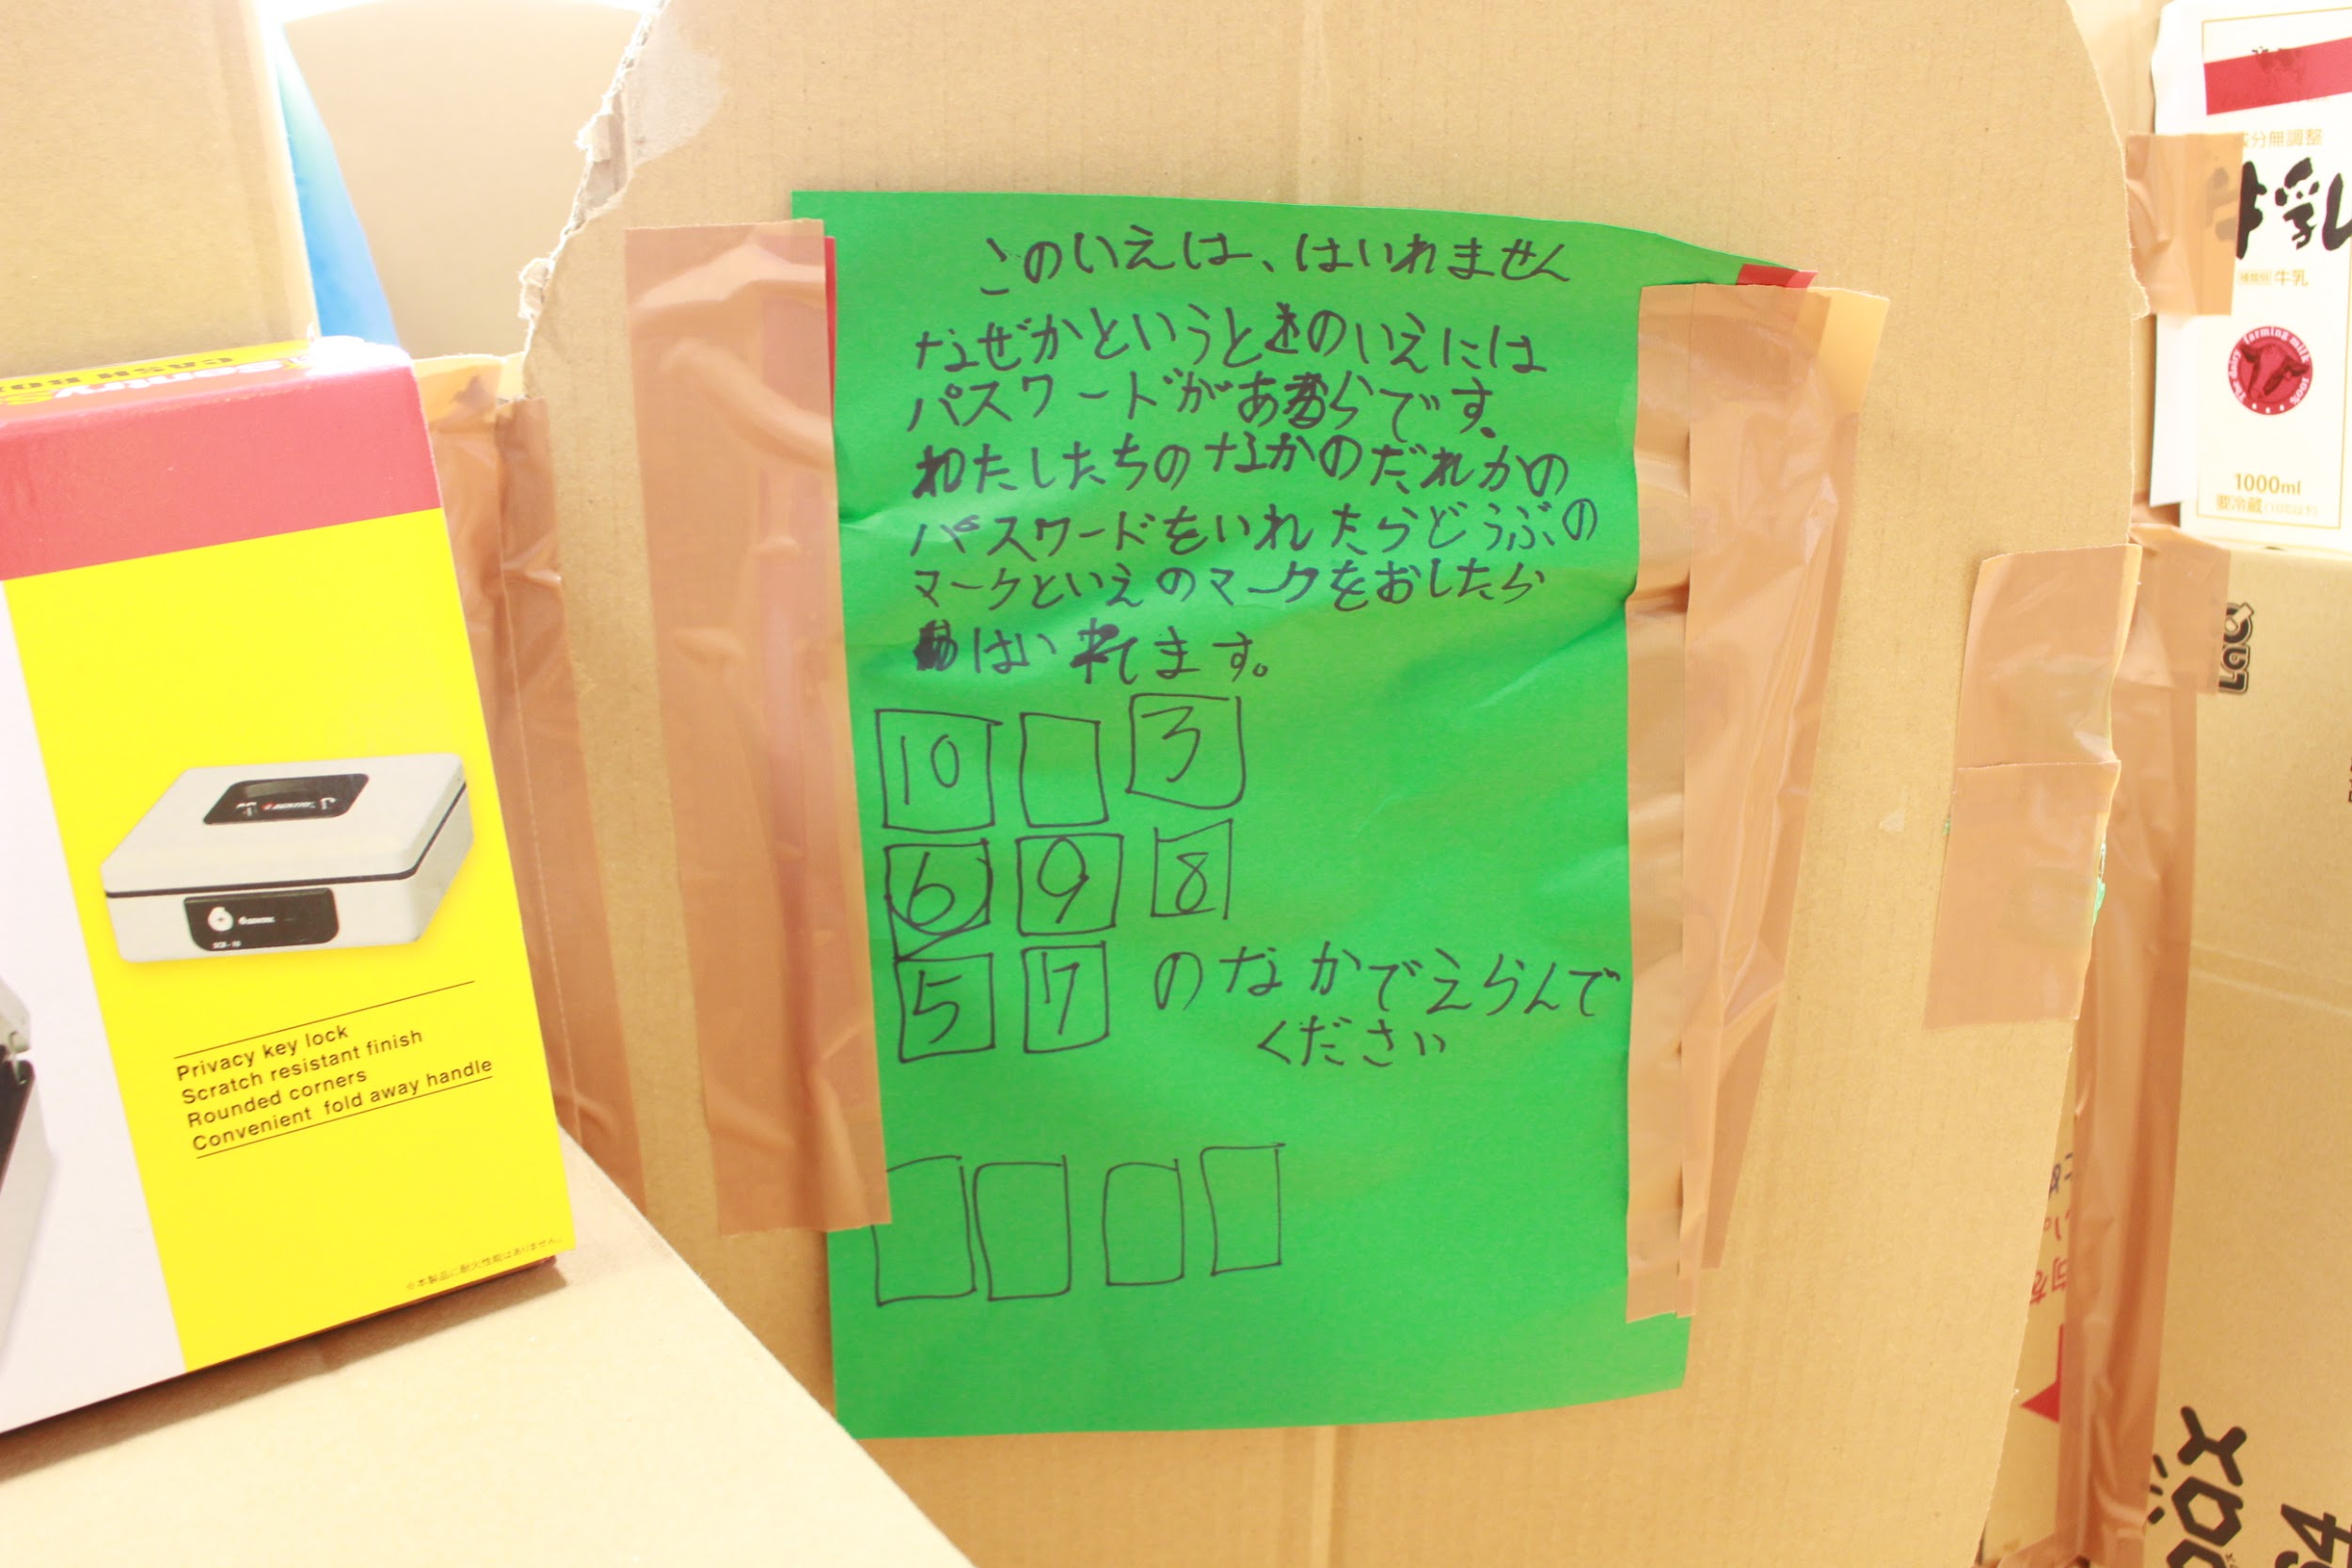 このいえは、はいれません
なぜかというとこのいえには
パスワードがあるからです。
わたしたちのなかのだれかの
パスワードをいれたらどうぶの
マークといえのマークをおしたら
はいれてます。
10 3
6 9 8
5 7 のなかでえらんで
ください
CASH BOX
Privacy key lock
Scratch resistant finish
Rounded corners
Convenient fold away handle
※本製品に耐火性能はありません。
成分無調整
牛乳
種類別 牛乳
farming milk
100%
1000ml
要冷蔵
LaQ